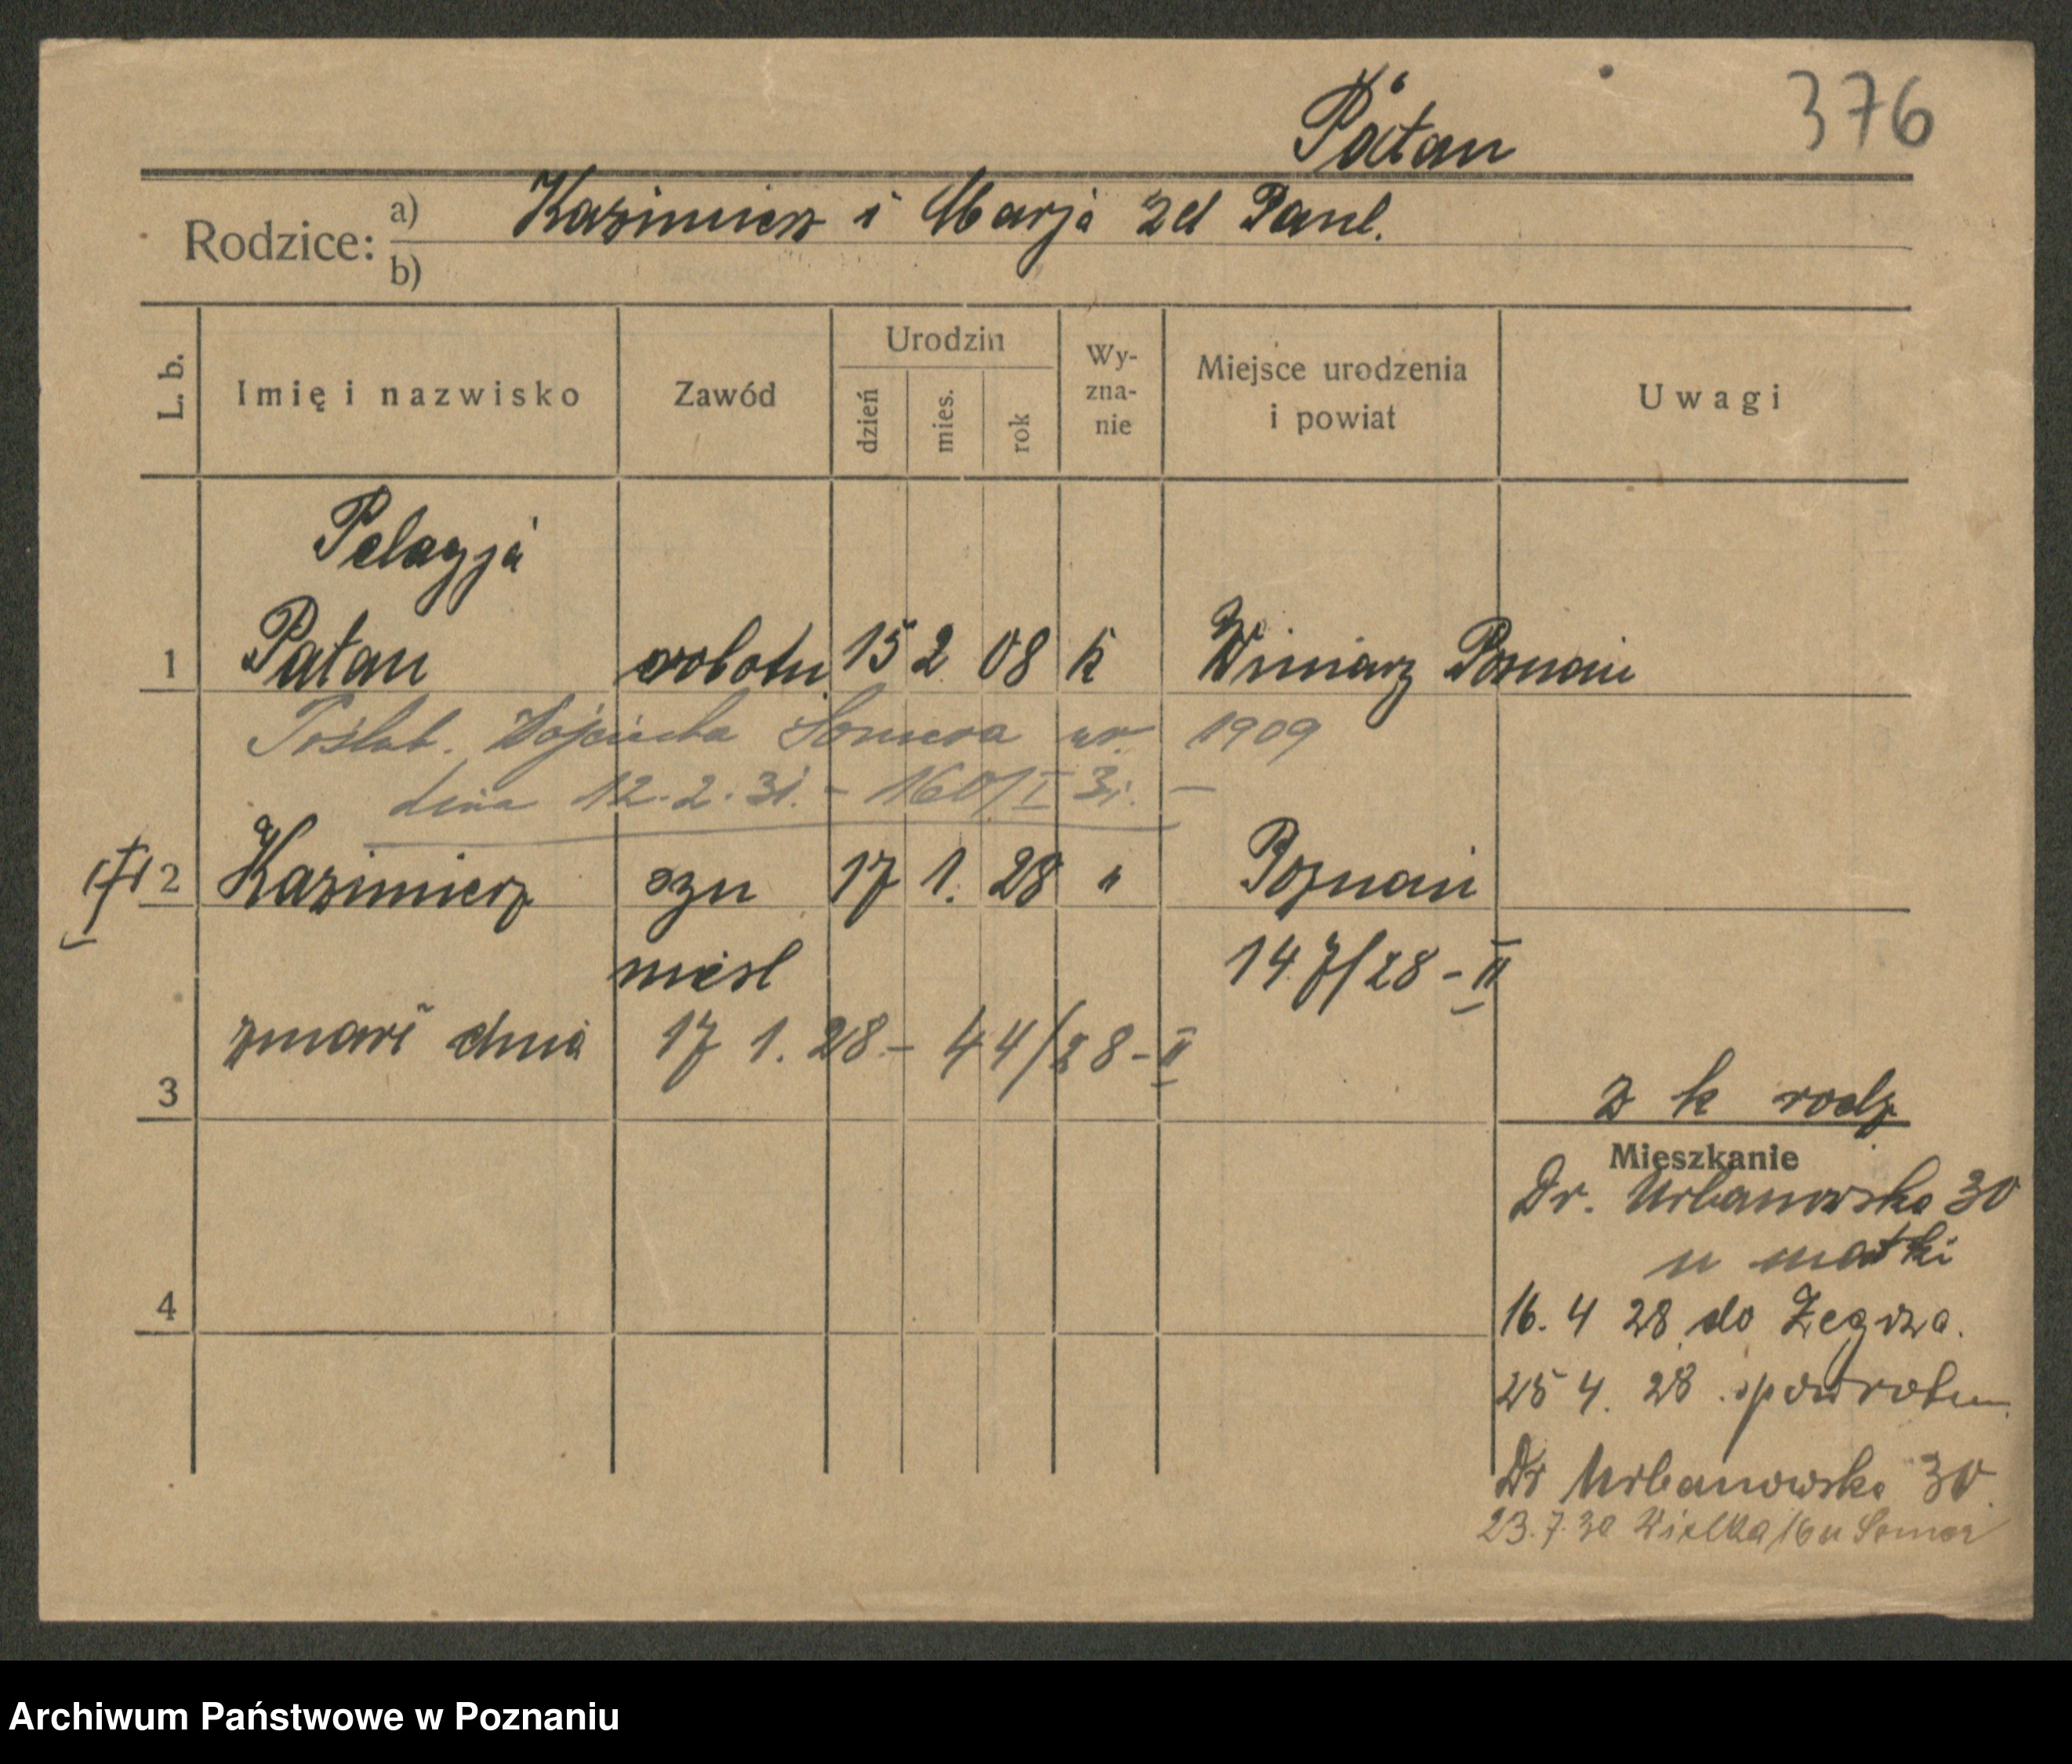 376
Patan
Rodzice: a) Kazimierz i Marja zd Paul.
b)
L. b. Imię i nazwisko Zawód Urodzin dzień mies. rok Wy-zna-nie Miejsce urodzenia i powiat Uwagi
Pelagja
1 Patan robotn 15 2 08 k Winiary Poznań
Poślub. Wojciecha Somera ur. 1909
dnia 12.2.31. - 160/I 31. -
2 Kazimierz syn 17 1. 28 " Poznań
nieśl 147/28-II
zmarł dnia 17 1. 28 - 44/28-II
3 z k rodz
Mieszkanie
Dr. Urbanowska 30
u matki
4 16. 4 28 do Żegrza.
25 4. 28 spowrotem
Dr Urbanowska 30.
23.7.30 Wielka 16 u Somer
Archiwum Państwowe w Poznaniu